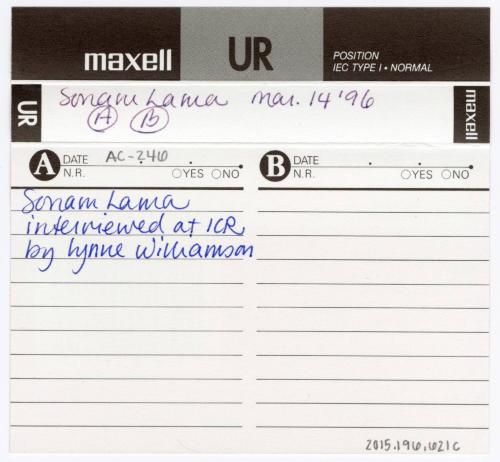 maxell UR POSITION
IEC TYPE I • NORMAL
UR Sonam Lama Mar. 14 '96 maxell
A B
A DATE AC-246 . .
N.R. ○YES ○NO
B DATE . .
N.R. ○YES ○NO
Sonam Lama
interviewed at ICR
by Lynne Williamson
2015.196.621c